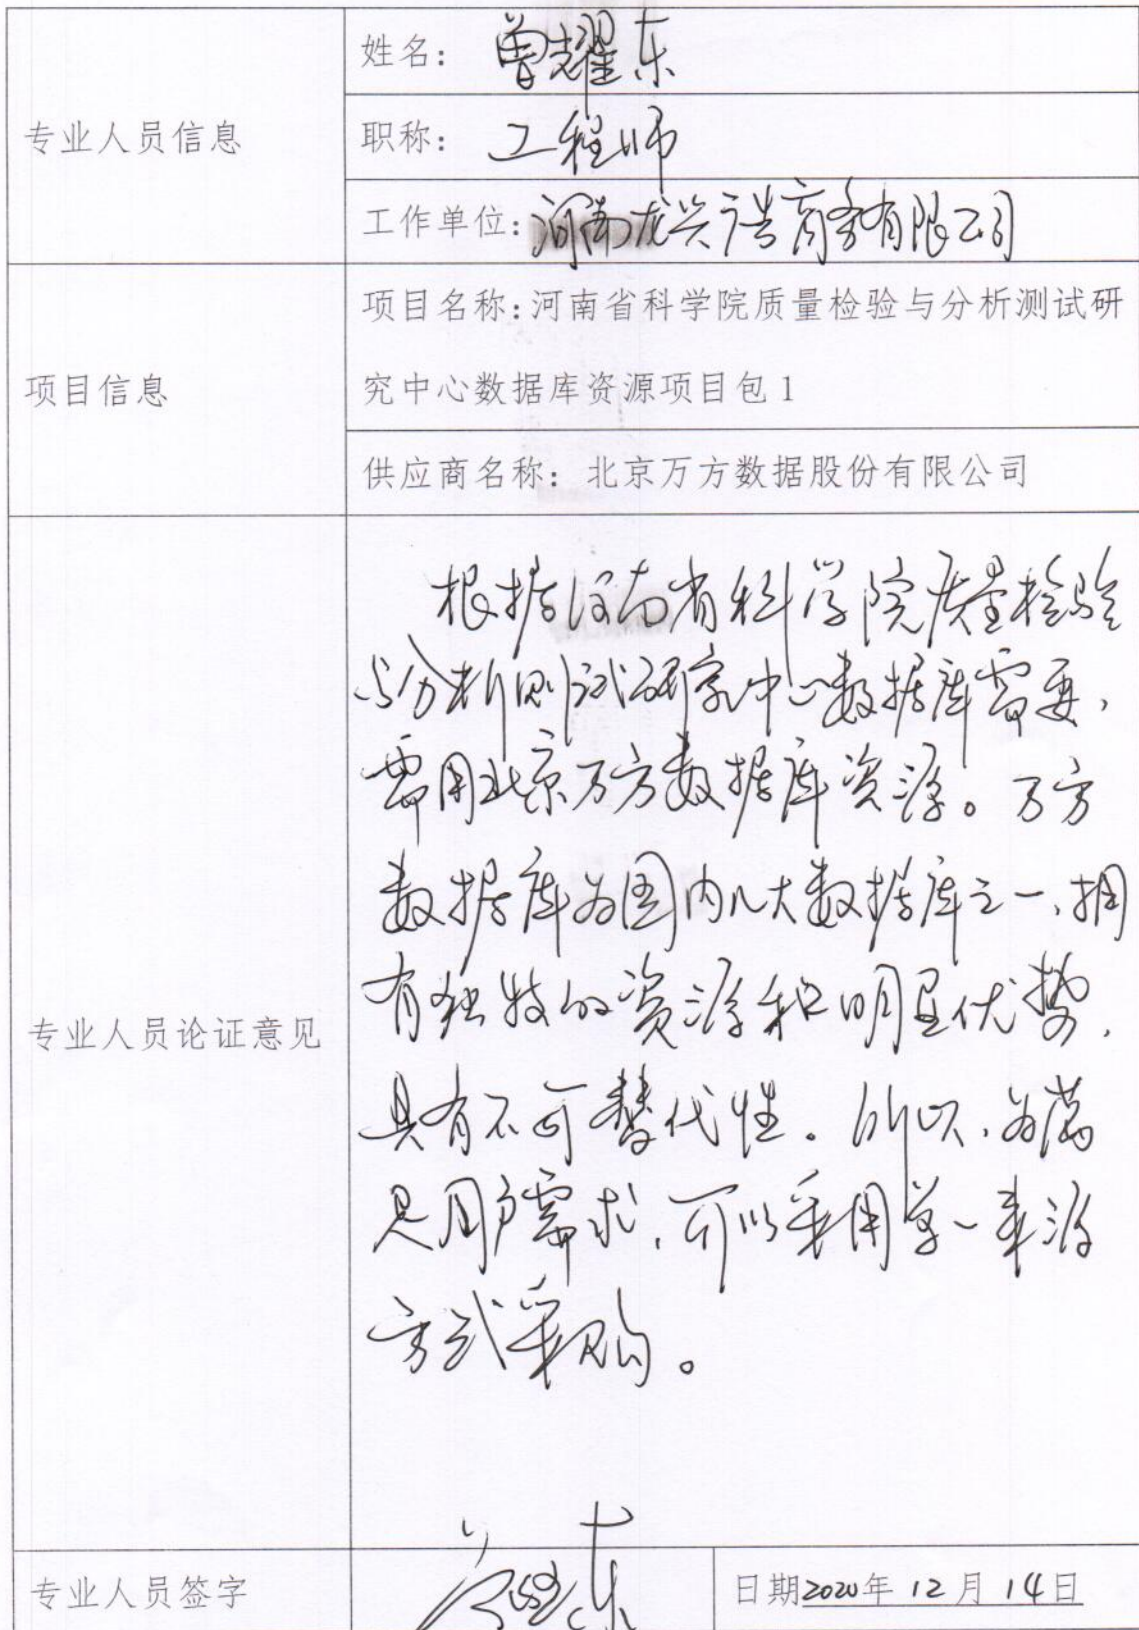 姓名：曾耀东
专业人员信息
职称：工程师
工作单位：河南龙兴广告商务有限公司
项目名称：河南省科学院质量检验与分析测试研
项目信息
究中心数据库资源项目包1
供应商名称：北京万方数据股份有限公司
根据河南省科学院质量检验
与分析测试研究中心数据库需要，
需用北京万方数据库资源。万方
数据库为国内几大数据库之一，拥
有独特的资源和明显优势，
专业人员论证意见
具有不可替代性。所以，为满
足用户需求，可以采用单一来源
方式采购。
专业人员签字 曾耀东 日期2020年12月14日